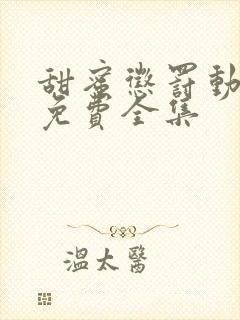 甜蜜懲罰動
免費全集
溫太醫